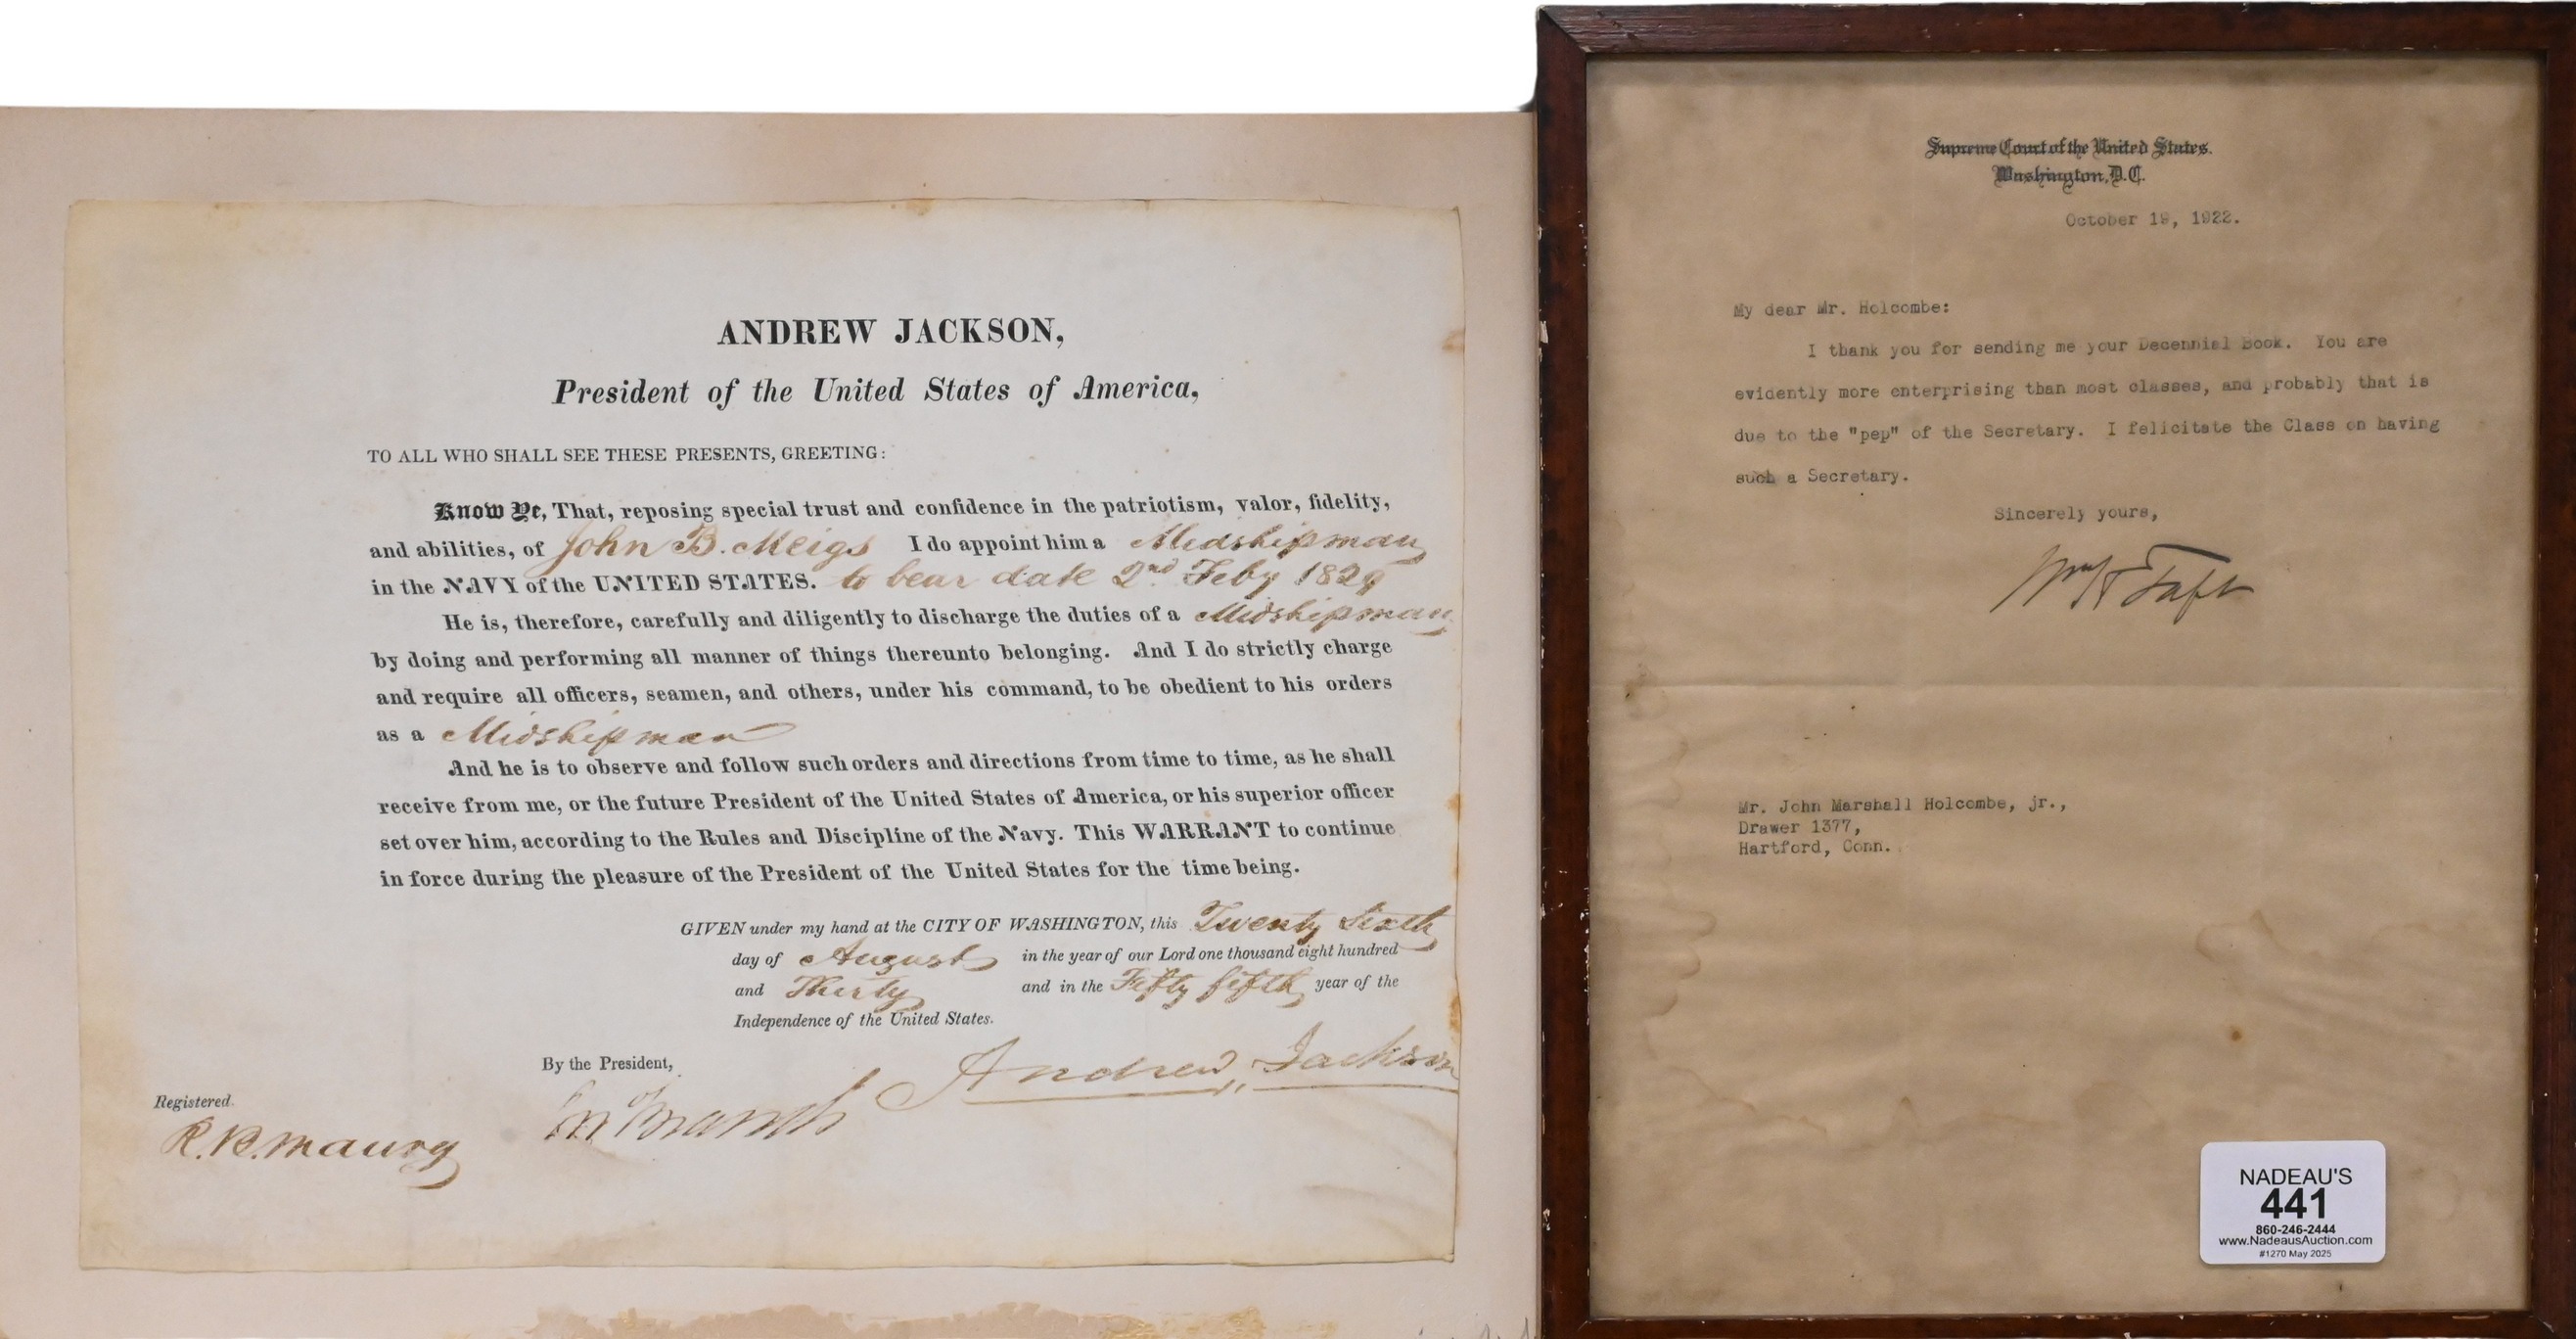 ANDREW JACKSON,
President of the United States of America,
TO ALL WHO SHALL SEE THESE PRESENTS, GREETING:
Know Ye, That, reposing special trust and confidence in the patriotism, valor, fidelity,
and abilities, of John B. Meigs I do appoint him a Midshipman
in the NAVY of the UNITED STATES. to bear date 2nd Feby 1829
He is, therefore, carefully and diligently to discharge the duties of a Midshipman
by doing and performing all manner of things thereunto belonging. And I do strictly charge
and require all officers, seamen, and others, under his command, to be obedient to his orders
as a Midshipman
And he is to observe and follow such orders and directions from time to time, as he shall
receive from me, or the future President of the United States of America, or his superior officer
set over him, according to the Rules and Discipline of the Navy. This WARRANT to continue
in force during the pleasure of the President of the United States for the time being.
GIVEN under my hand at the CITY OF WASHINGTON, this Twenty Sixth
day of August in the year of our Lord one thousand eight hundred
and Thirty and in the Fifty fifth year of the
Independence of the United States.
Andrew Jackson
By the President,
Jno Branch
Registered.
R.B. Maury
Supreme Court of the United States.
Washington, D.C.
October 19, 1922.
My dear Mr. Holcombe:
I thank you for sending me your Decennial Book. You are
evidently more enterprising than most classes, and probably that is
due to the "pep" of the Secretary. I felicitate the Class on having
such a Secretary.
Sincerely yours,
Wm H Taft
Mr. John Marshall Holcombe, jr.,
Drawer 1377,
Hartford, Conn.
NADEAU'S
441
860-246-2444
www.NadeausAuction.com
#1270 May 2025